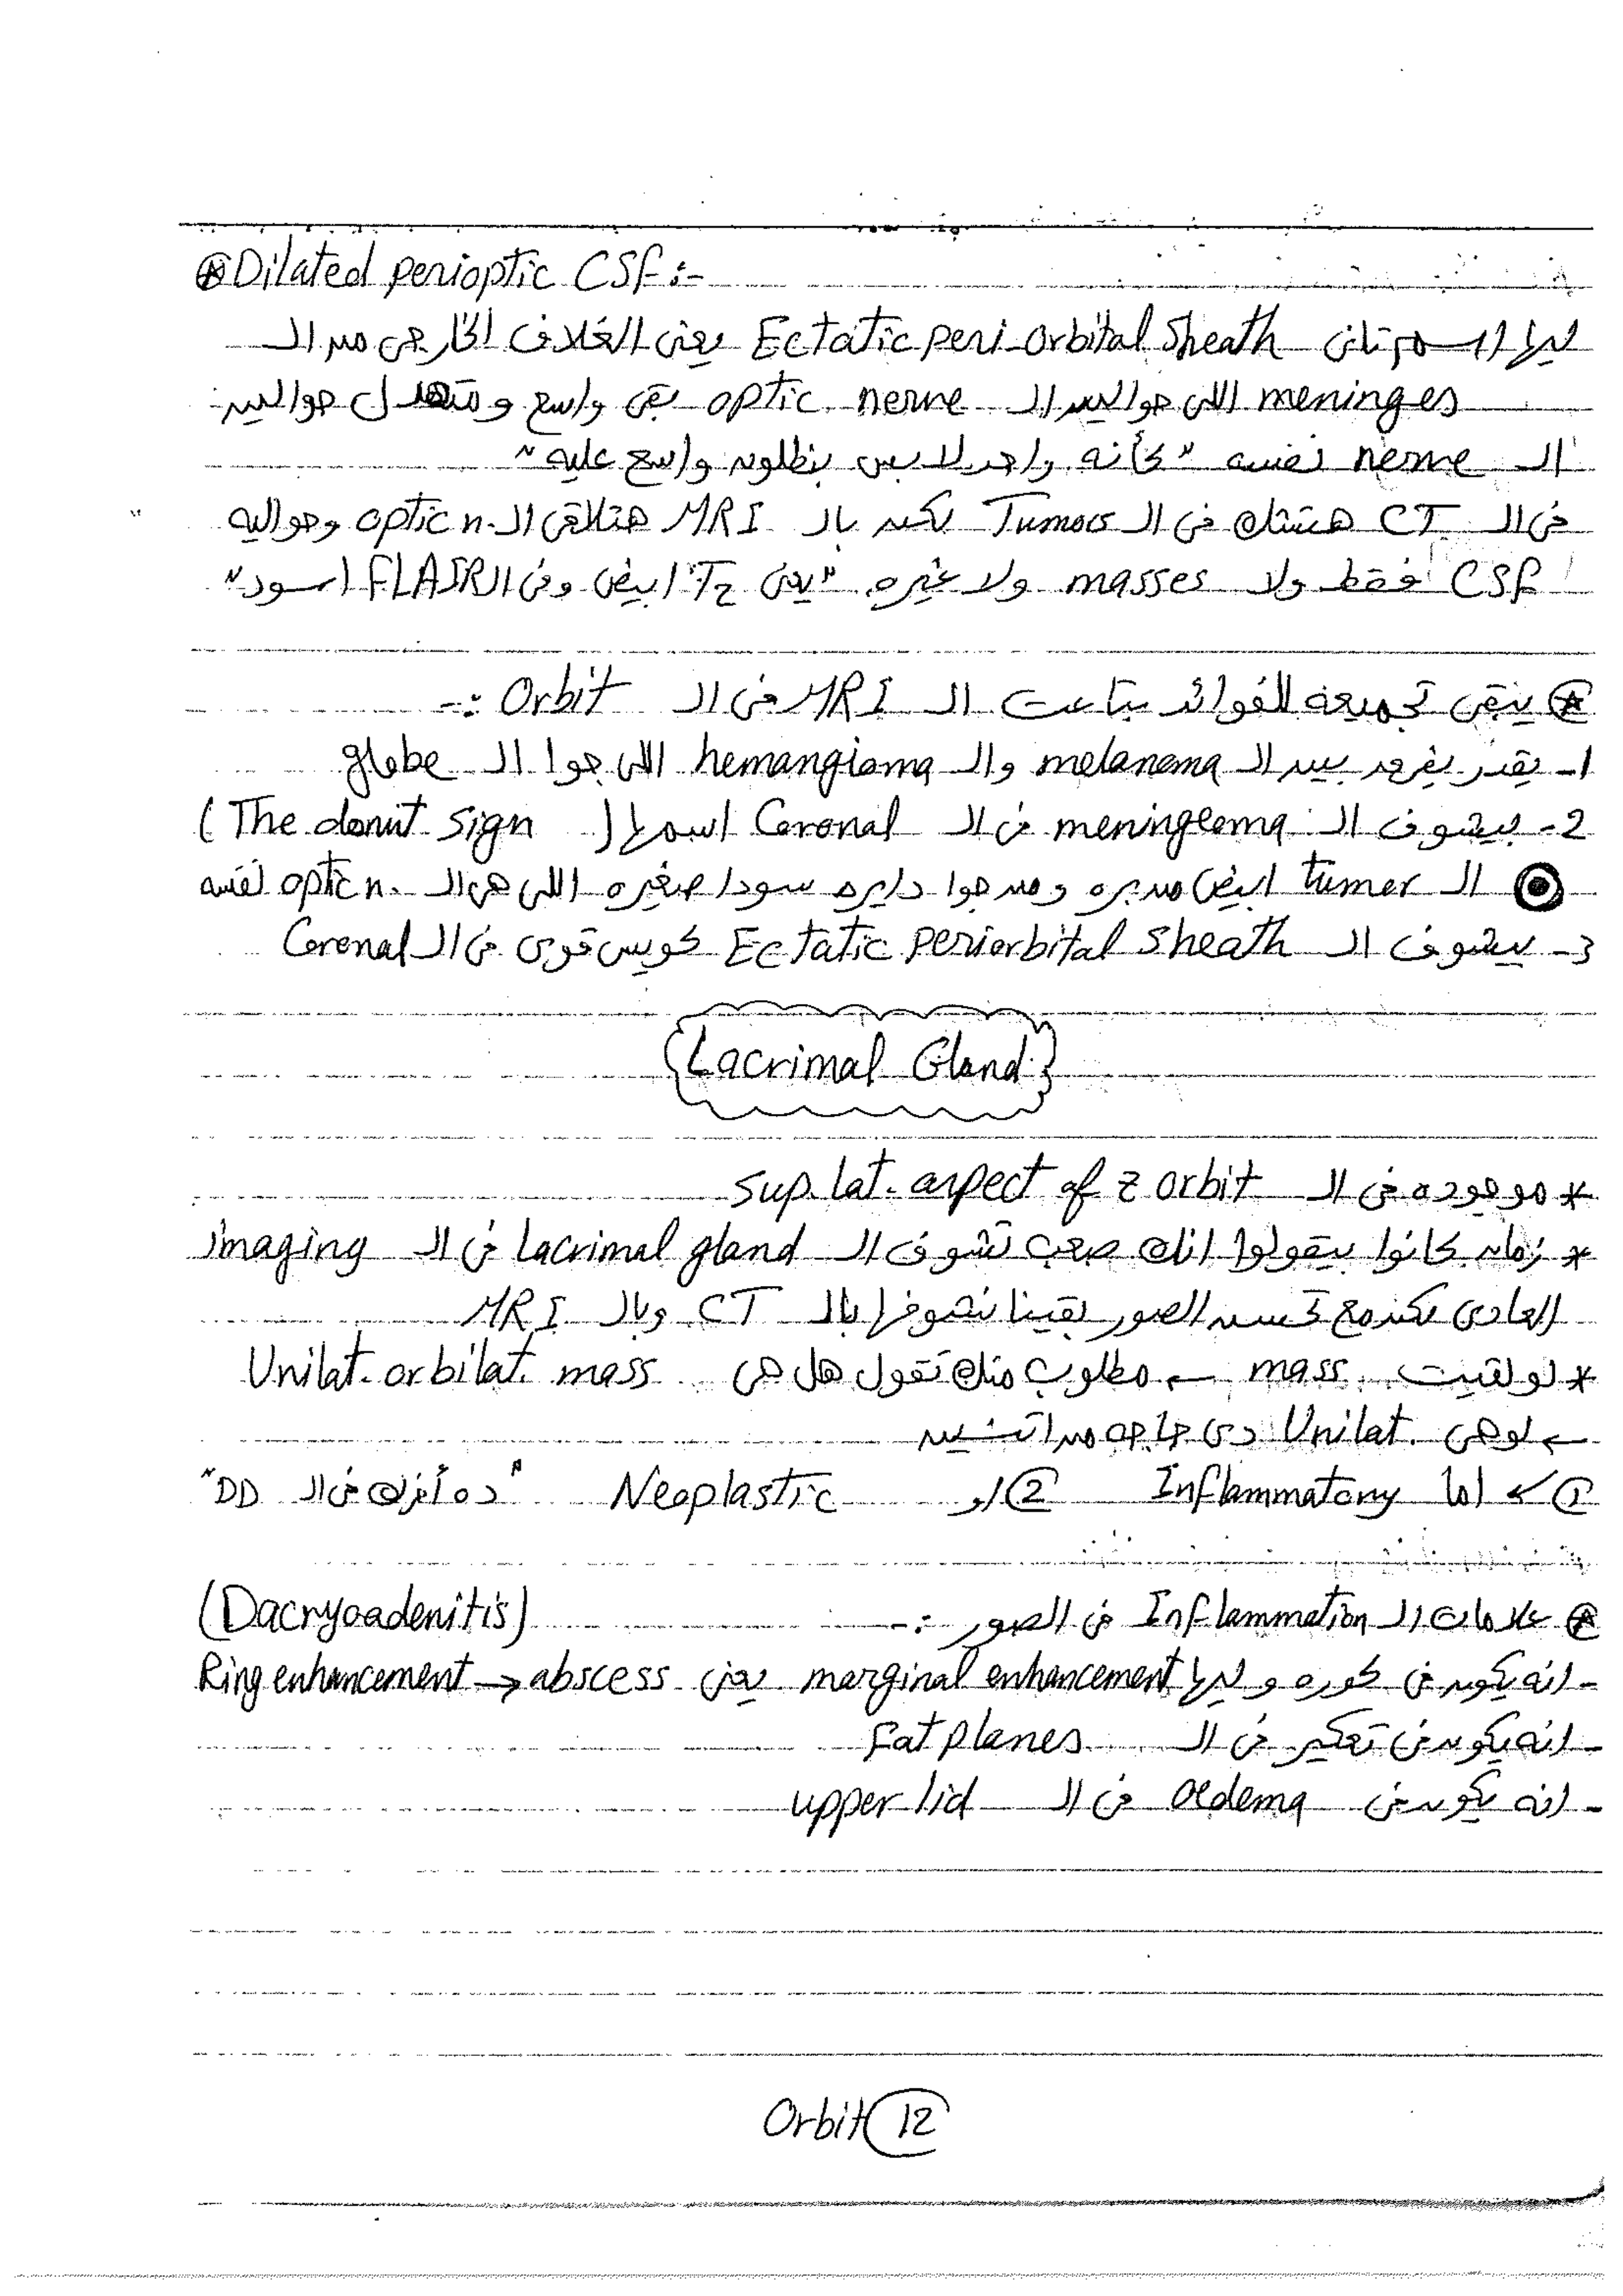 ⊛ Dilated perioptic CSF :-
ليها اسم تاني Ectatic peri-orbital Sheath يعني الغلاف الخارجي من الـ
meninges اللي حوالين الـ optic nerve بقى واسع ومتهدل حوالين
الـ nerve نفسه "كأنه واحد لابس بنطلون واسع عليه"
في الـ CT هتشك في الـ Tumors لكن بالـ MRI هتلاقي الـ optic n. وحواليه
CSF فقط ولا masses ولا غيره "يعني T2 ابيض وفي الـ FLAIR اسود"
⊛ يبقى تجميعة للفوائد بتاعت الـ MRI في الـ Orbit :-
1- يقدر يفرق بين الـ melanoma والـ hemangioma اللي جوا الـ globe
2- بيشوف الـ meningeoma في الـ Coronal اسمها (The donut sign)
الـ tumor ابيض من بره ومن جوا دايره سودا صغيره اللي هي الـ optic n. نفسه
3- بيشوف الـ Ectatic periorbital sheath كويس قوي في الـ Coronal
Lacrimal Gland
* موجوده في الـ sup. lat. aspect of z orbit
* زمان كانوا بيقولوا انك صعب تشوف الـ lacrimal gland في الـ imaging
العادي لكن مع تحسن الصور بقينا نشوفها بالـ CT وبالـ MRI
* لو لقيت mass ← مطلوب منك تقول هل هي Unilat. or bilat. mass
← لو هي Unilat. دي حاجه من اتنين
① ↙ اما Inflammatory ② او Neoplastic "ده أفرك في الـ DD"
⊛ علامات الـ Inflammation في الصور :- (Dacryoadenitis)
- انه يكون في كوره وليها marginal enhancement يعني Ring enhancement → abscess
- انه يكون في تعكير في الـ Fat planes
- انه يكون في oedema في الـ upper lid
Orbit 12